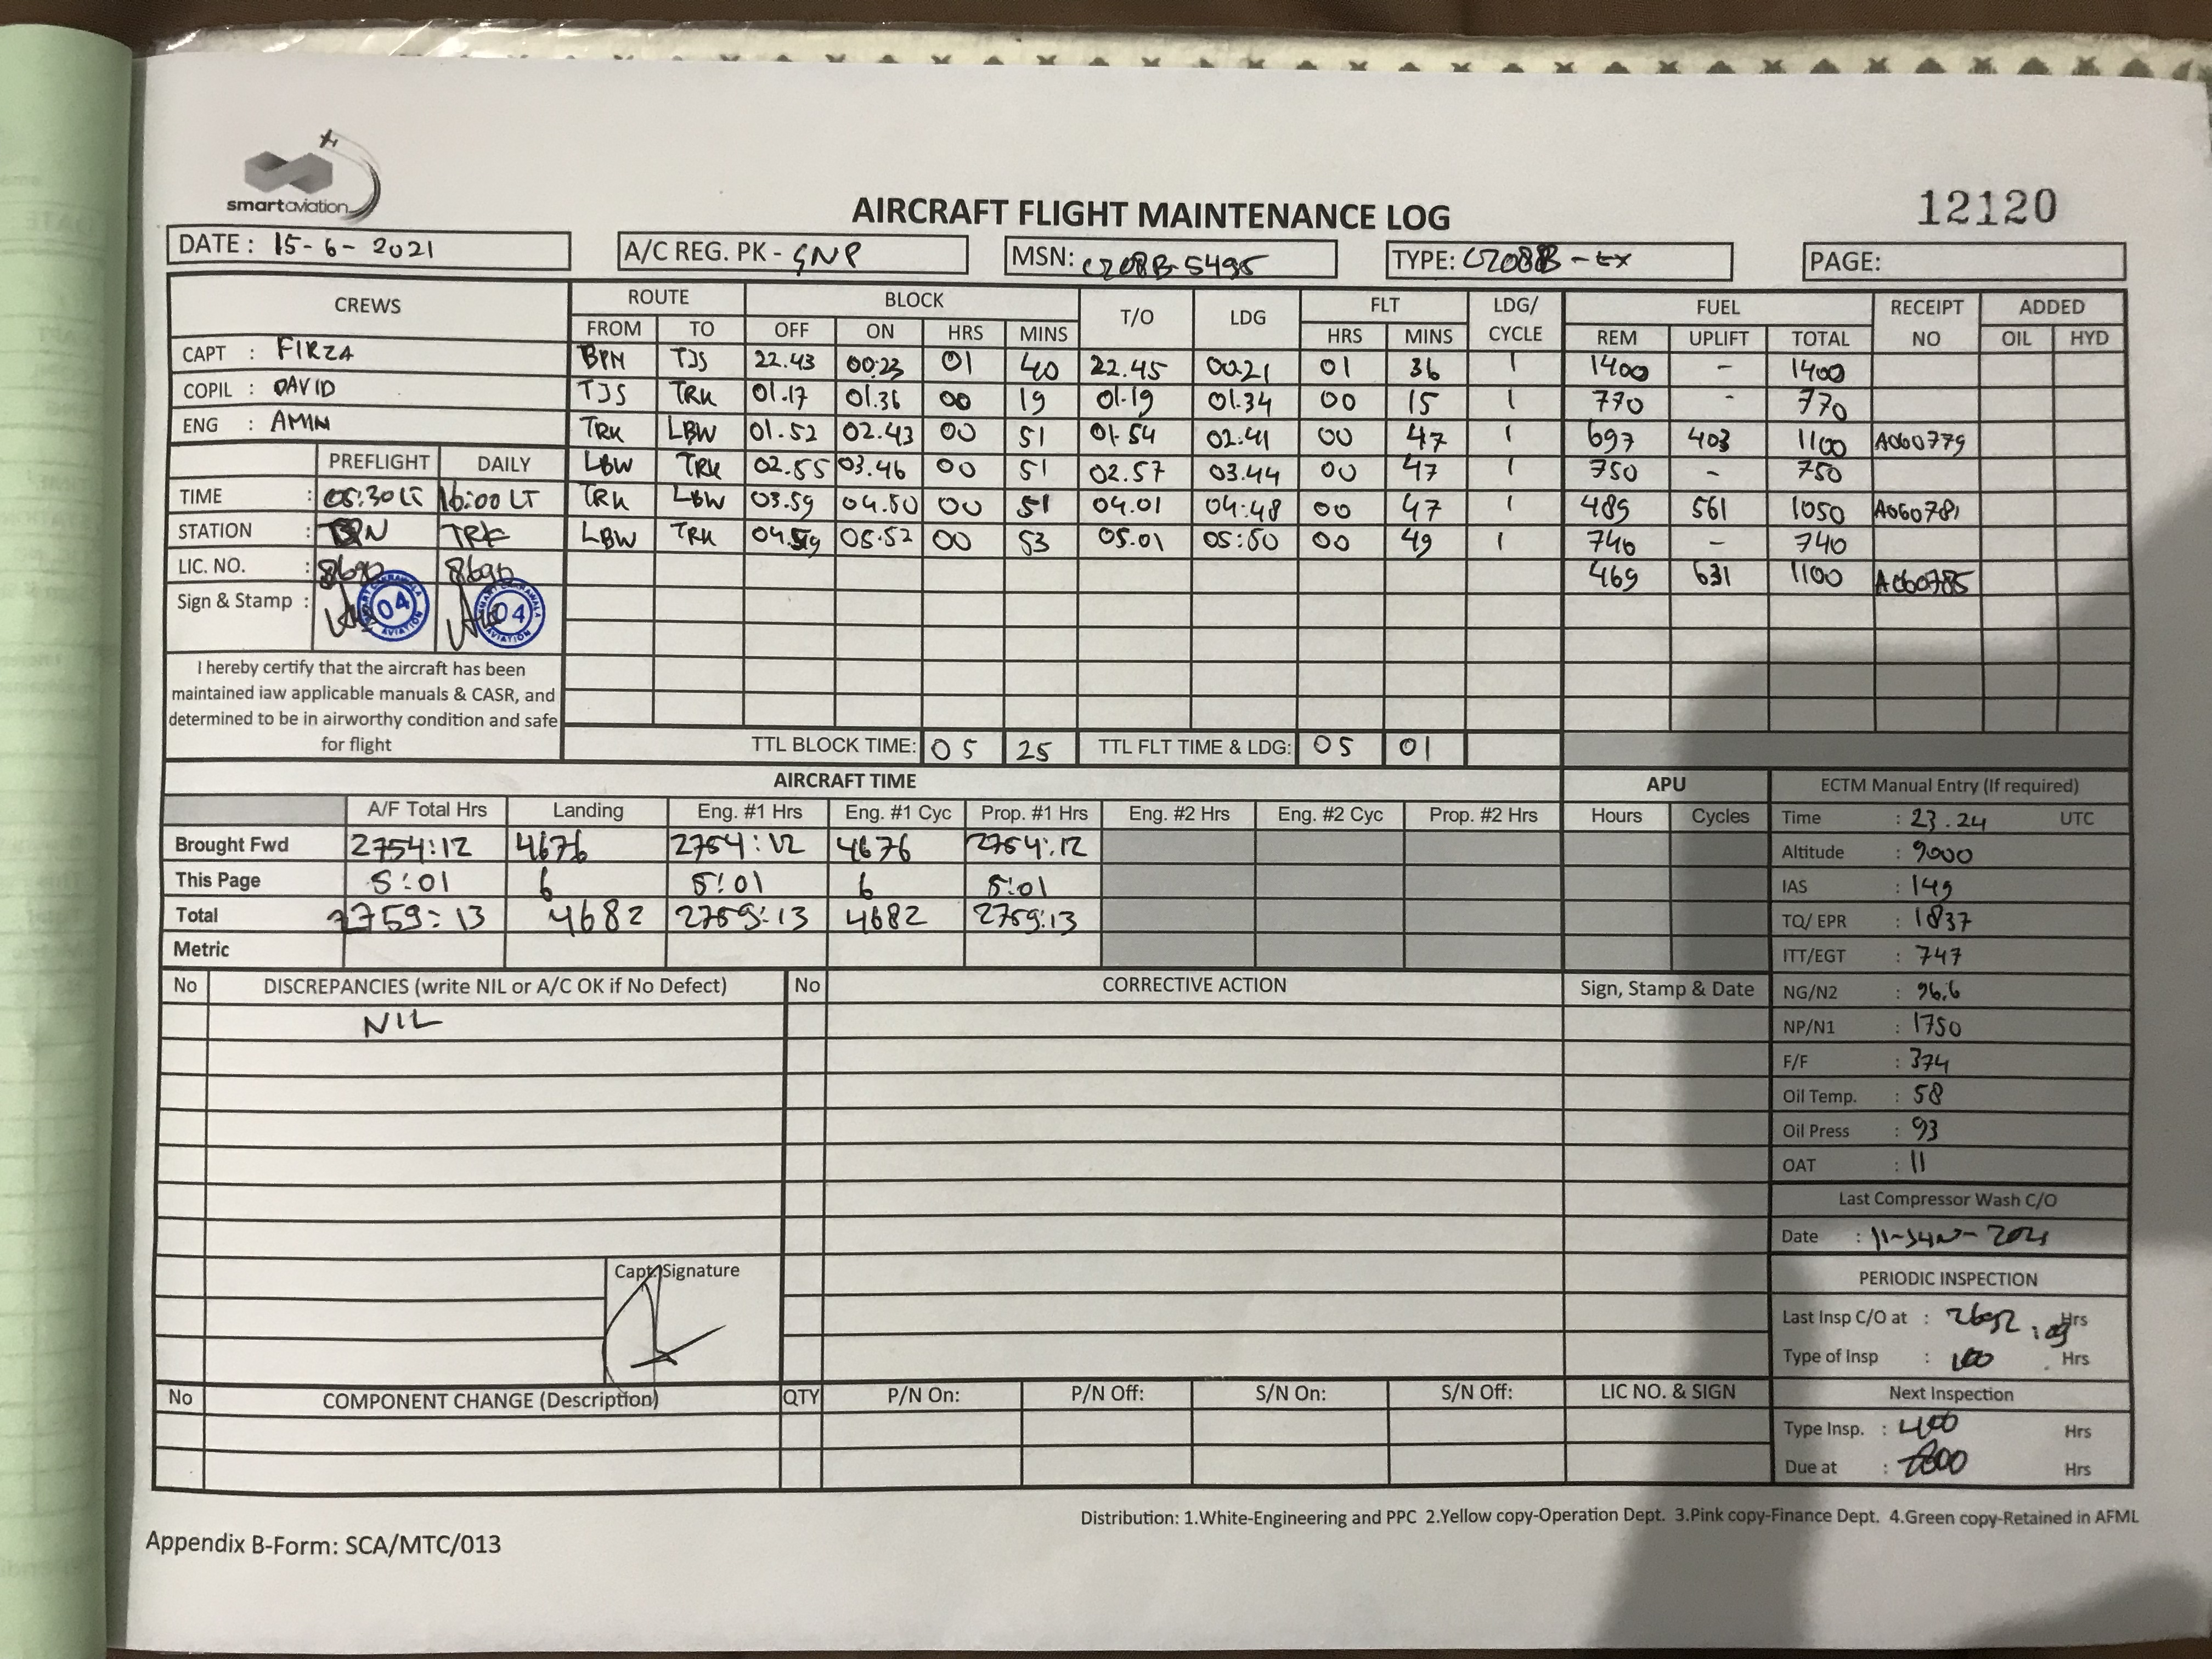 smartaviation
AIRCRAFT FLIGHT MAINTENANCE LOG
12120
DATE : 15-6-2021
A/C REG. PK - SNP
MSN: C208B-5495
TYPE: C208B-EX
PAGE:
CREWS ROUTE BLOCK T/O LDG FLT LDG/ CYCLE FUEL RECEIPT NO ADDED
FROM TO OFF ON HRS MINS HRS MINS REM UPLIFT TOTAL OIL HYD
CAPT : FIRZA
COPIL : DAVID
ENG : AMIN
BPN TJS 22.43 00:23 01 40 22.45 00.21 01 36 1 1400 - 1400
TJS TRK 01.17 01.36 00 19 01.19 01.34 00 15 1 770 - 770
TRK LBW 01.52 02.43 00 51 01.54 02.41 00 47 1 697 403 1100 A060779
LBW TRK 02.55 03.46 00 51 02.57 03.44 00 47 1 750 - 750
TRK LBW 03.59 04.50 00 51 04.01 04:48 00 47 1 489 561 1050 A060781
LBW TRK 04.59 05.52 00 53 05.01 05:50 00 49 1 740 - 740
469 631 1100 A060785
PREFLIGHT DAILY
TIME : 05:30 LT 16:00 LT
STATION : BPN TRK
LIC. NO. : 8690 8690
Sign & Stamp :
04 AVIATION
04 AVIATION
I hereby certify that the aircraft has been
maintained iaw applicable manuals & CASR, and
determined to be in airworthy condition and safe
for flight
TTL BLOCK TIME: 05 25 TTL FLT TIME & LDG: 05 01
AIRCRAFT TIME APU
A/F Total Hrs Landing Eng. #1 Hrs Eng. #1 Cyc Prop. #1 Hrs Eng. #2 Hrs Eng. #2 Cyc Prop. #2 Hrs Hours Cycles
Brought Fwd 2754:12 4676 2754:12 4676 2754:12
This Page 5:01 6 5:01 6 5:01
Total 2759:13 4682 2759:13 4682 2759:13
Metric
ECTM Manual Entry (If required)
Time : 23.24 UTC
Altitude : 9000
IAS : 149
TQ/ EPR : 1837
ITT/EGT : 747
NG/N2 : 96.6
NP/N1 : 1750
F/F : 374
Oil Temp. : 58
Oil Press : 93
OAT : 11
Last Compressor Wash C/O
Date : 11-JUN-2021
PERIODIC INSPECTION
Last Insp C/O at : 2692:09 Hrs
Type of Insp : 100 Hrs
Next Inspection
Type Insp. : 400 Hrs
Due at : 2800 Hrs
No DISCREPANCIES (write NIL or A/C OK if No Defect) No CORRECTIVE ACTION Sign, Stamp & Date
NIL
Capt. Signature
No COMPONENT CHANGE (Description) QTY P/N On: P/N Off: S/N On: S/N Off: LIC NO. & SIGN
Distribution: 1.White-Engineering and PPC 2.Yellow copy-Operation Dept. 3.Pink copy-Finance Dept. 4.Green copy-Retained in AFML
Appendix B-Form: SCA/MTC/013